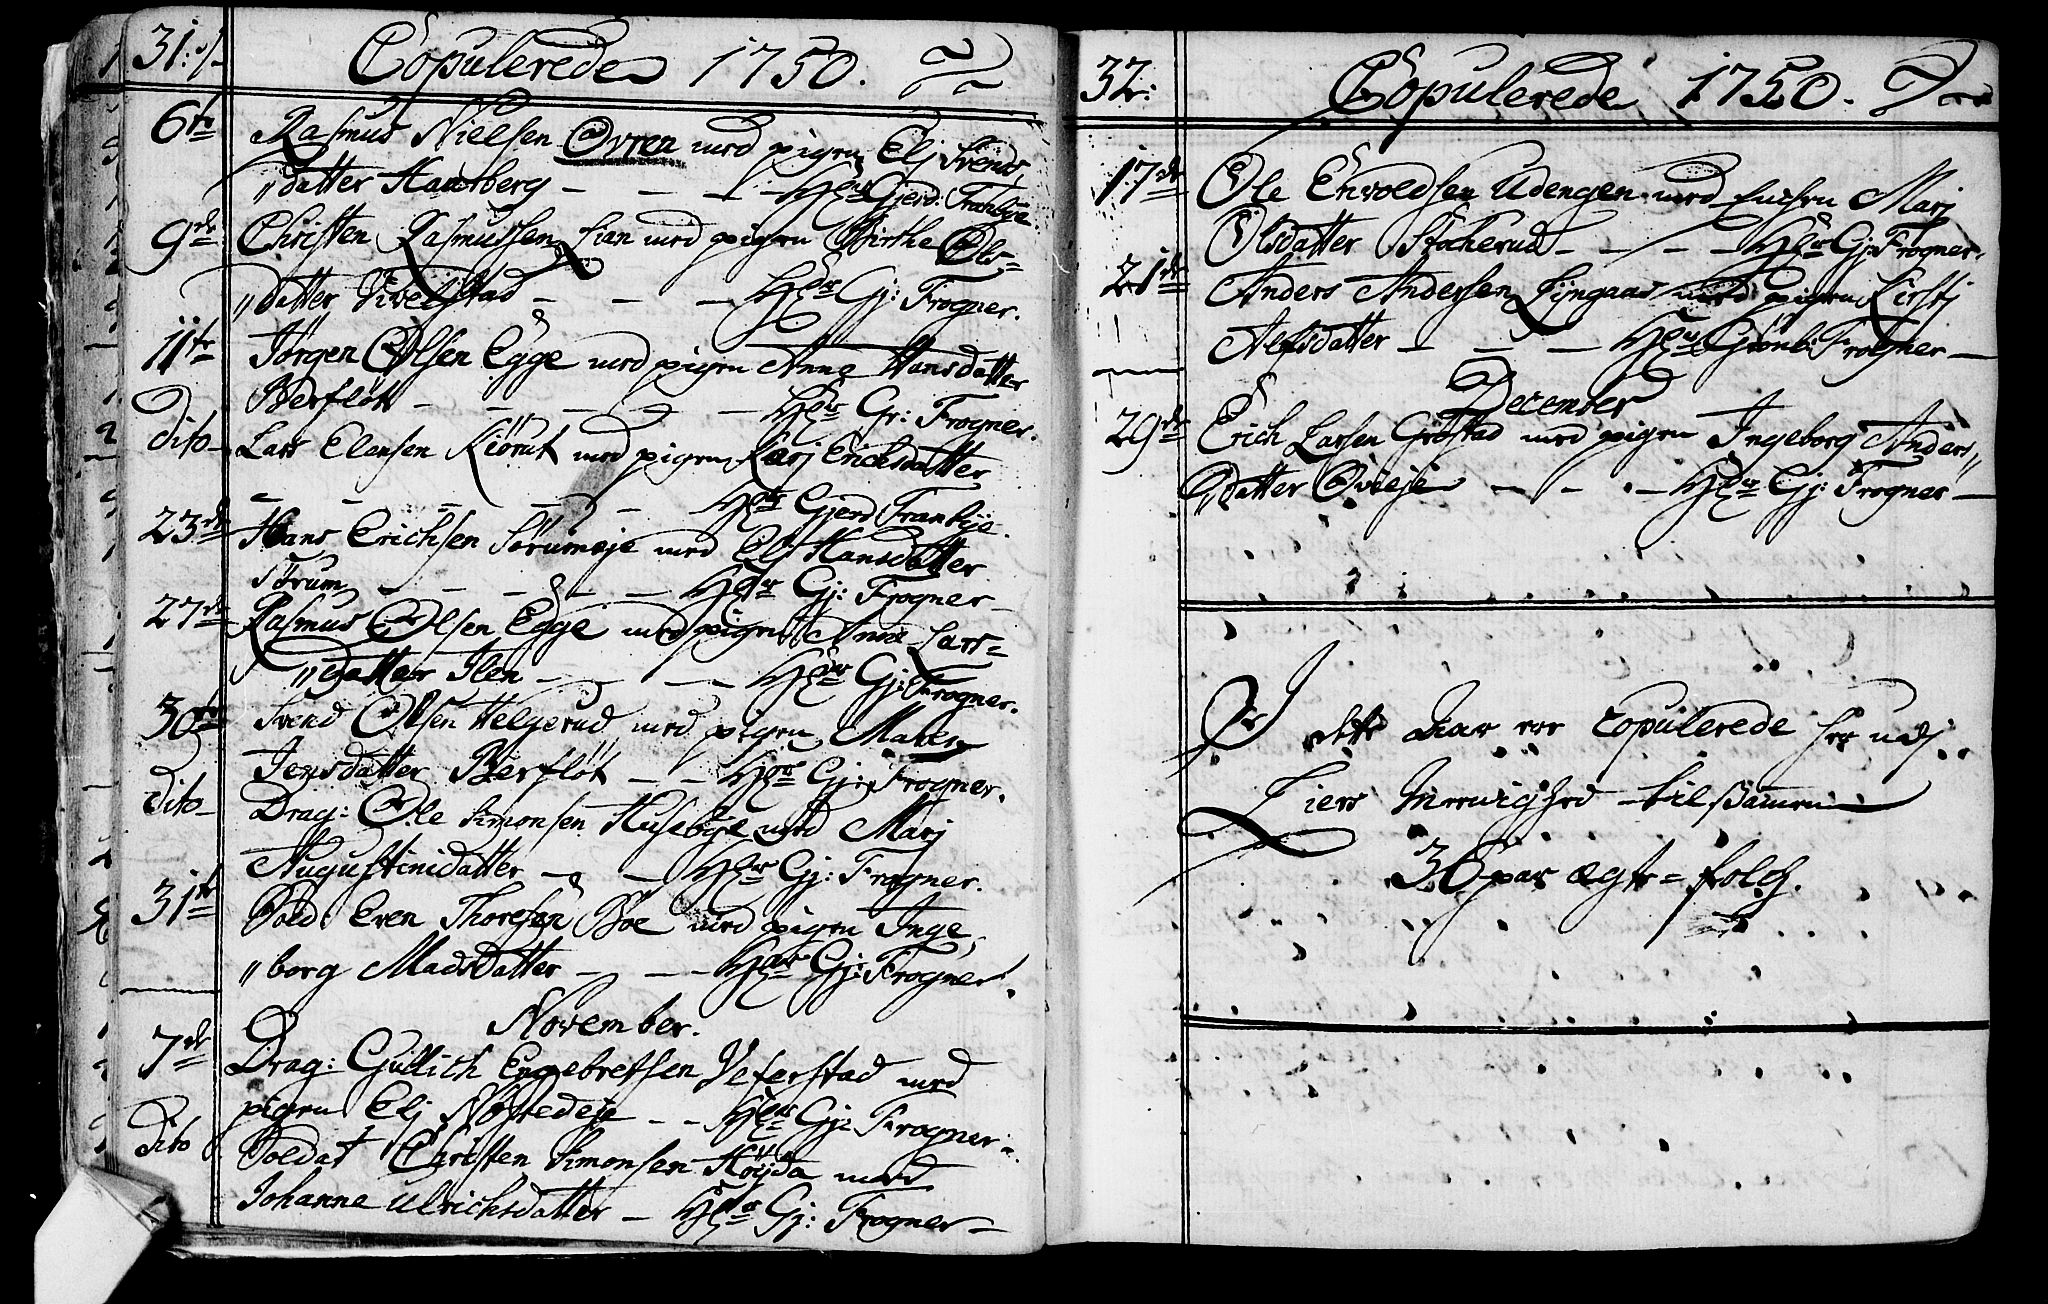 31:
Copulerede 1750.
6te Rasmus Nielsen Ovren med pigen Elj Svends
"datter Hansberg - - - Hr Gjerd: Tranbye
9de Christen Rasmussen Lian med pigen Birthe Ols=
"datter Vivelstad - - - Hr Gj: Frogner.
11te Jörgen Olsen Egge med pigen Anne Hansdatter
Berflöt - - - - Hr Gj: Frogner.
dito Lars Elensen Kiörut med pigen Karj Erichsdatter
- - - - - Hr Gjerd Tranbye.
23de Hans Erichsen Sörumeje med Elj Hansdatter
Sörum - - - - - Hr Gj: Frogner
27de Rasmus Olsen Egge med pigen Anne Lars=
"datter Ilen - - - Hr Gj: Frogner.
30te Svend Olsen Helgerud med pigen Maren
Jensdatter Berflöt - - Hr Gj: Frogner.
dito Drag: Ole Simonsen Husebye med Marj
Augustinidatter - - - Hr Gj: Frogner.
31te Sold: Even Thoresen Boe med pigen Inge,
"borg Madsdatter - - - Hr Gj: Frogner.
November.
7de Drag: Gullich Engebretsen Veferstad med
pigen Elj Nöstedeje - - Hr Gj: Frogner.
dito Soldat Christen Simonsen Höijda med
Johanne Ulrichsdatter - Hr Gj: Frogner-
32:
Copulerede 1750.
17de Ole Envoldsen Udengen med Enchen Marj
Olsdatter Stocherud - - - Hr Gj: Frogner.
21de Anders Andersen Lijngaas med pigen Kirstj
Alfsdatter - - - Hr Grönb: Frogner -
December
29de Erich Larsen Gröstad med pigen Ingeborg Anders,,
"datter Ovreeje - - - Hr Gj: Frogner -
I dette Aar ere Copulerede her udj
Liers Menighed tilsamen
36 par ægte=folch.